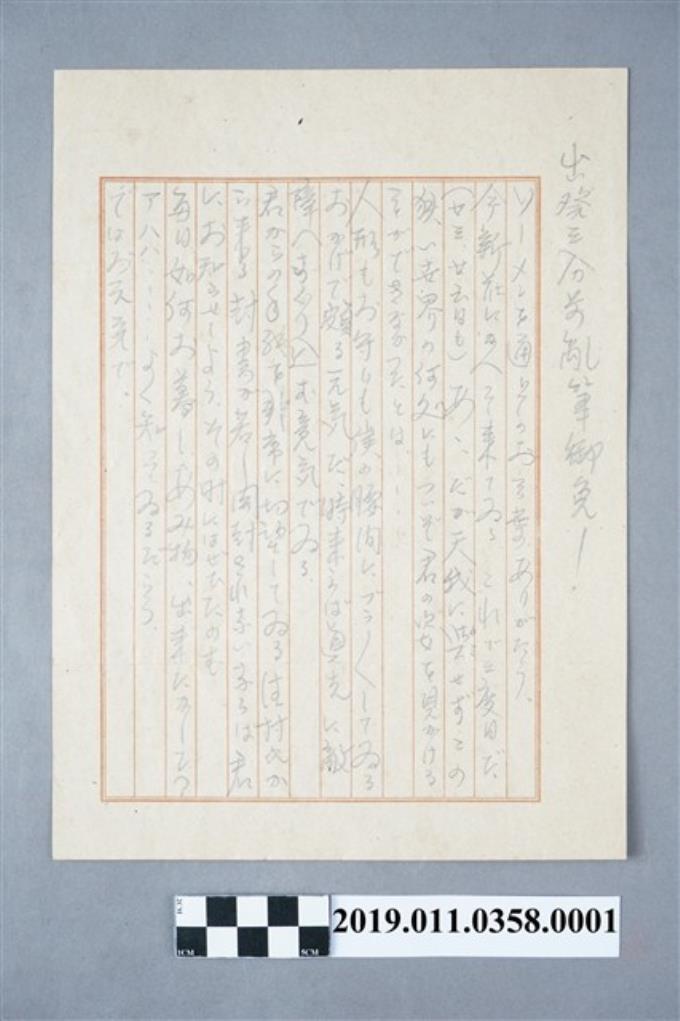 出發三分前亂筆御免！
ソーメンを通じてのお言葉ありがたう、
今新荘に加へて来てゐる これで二度目だ
(廿三、廿五日も) あゝ、だが天我に與せずこの
狭い世界の何処にもついぞ君の姿を見かける
ことができなかったとは……
人形もお守りも僕の腰間にブラ〱してゐる
おかげで頗る元気だ、時来らば真先に敵
陣へずり込む意気でゐる、
君からの手紙を非常に切望してゐる 住村氏か
ら来る封書が若し開封されないならば君
にお知らせしよう、その時にはぜひたのむ
毎日如何お暮し、あみ物、出来たかしら？
アハハ……よく知ってゐるだらう、
ではお元気で、
2019.011.0358.0001
1CM
5CM